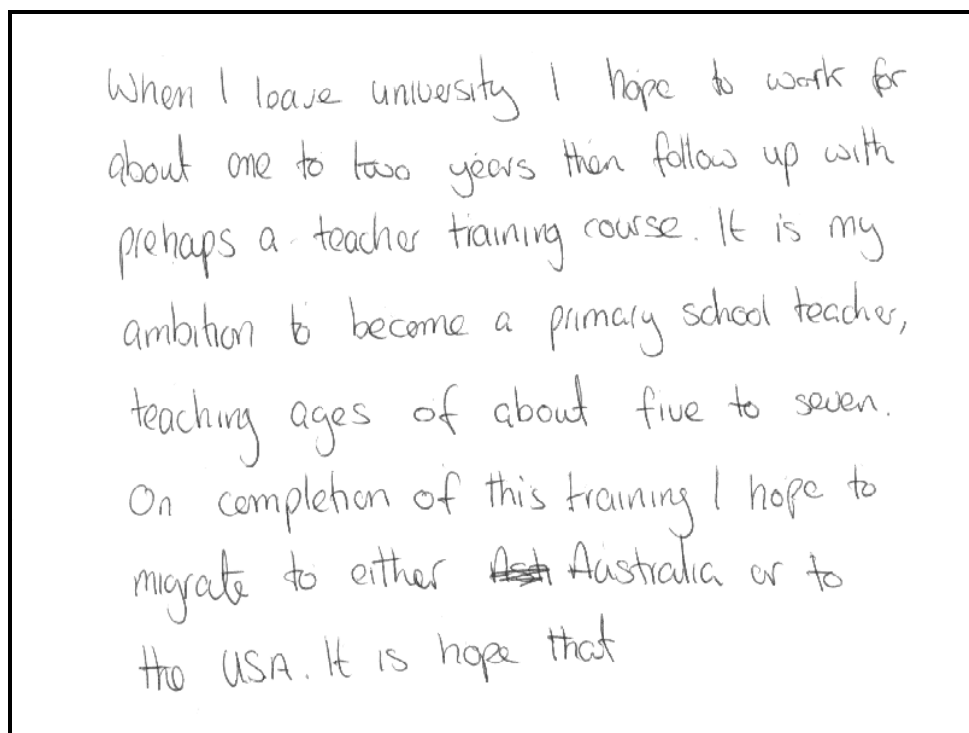 When I leave university I hope to work for
about one to two years then follow up with
prehaps a teacher training course. It is my
ambition to become a primary school teacher,
teaching ages of about five to seven.
On completion of this training I hope to
migrate to either Australia or to
the USA. It is hope that